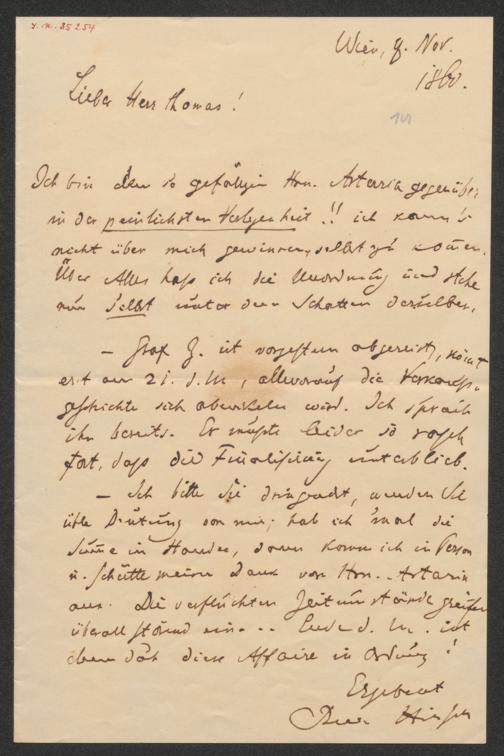 I.N. 35254
Wien, 8. Nov.
1860.
Lieber Herr Thomas!
Ich bin dem so gefälligen Hrn. Artaria gegenüber
in der peinlichsten Verlegenheit!! ich kann's
nicht über mich gewinnen, selbst zu kommen.
Über Alles hass ich die Unordnung und stehe
nun selbst unter dem Schatten derselben.
– Graf Z. ist vorgestern abgereist, kömmt
erst am 21. d. M., allworauf die Verkaufs-
geschichte sich abwickeln wird. Ich sprach
ihn bereits. Er mußte leider so rasch
fort, daß die Finalisirung unterblieb.
– Ich bitte Sie dringendst, wenden Sie
üble Deutung von mir; hab ich 'mal die
Summe in Handen, dann komm ich in Person
u. schütte meinen Dank vor Hrn. Artaria
aus. Die verfluchten Zeitumstände greifen
überall störend ein... Ende d. M. ist
eben doch diese Affaire in Ordnung!
Ergebenst